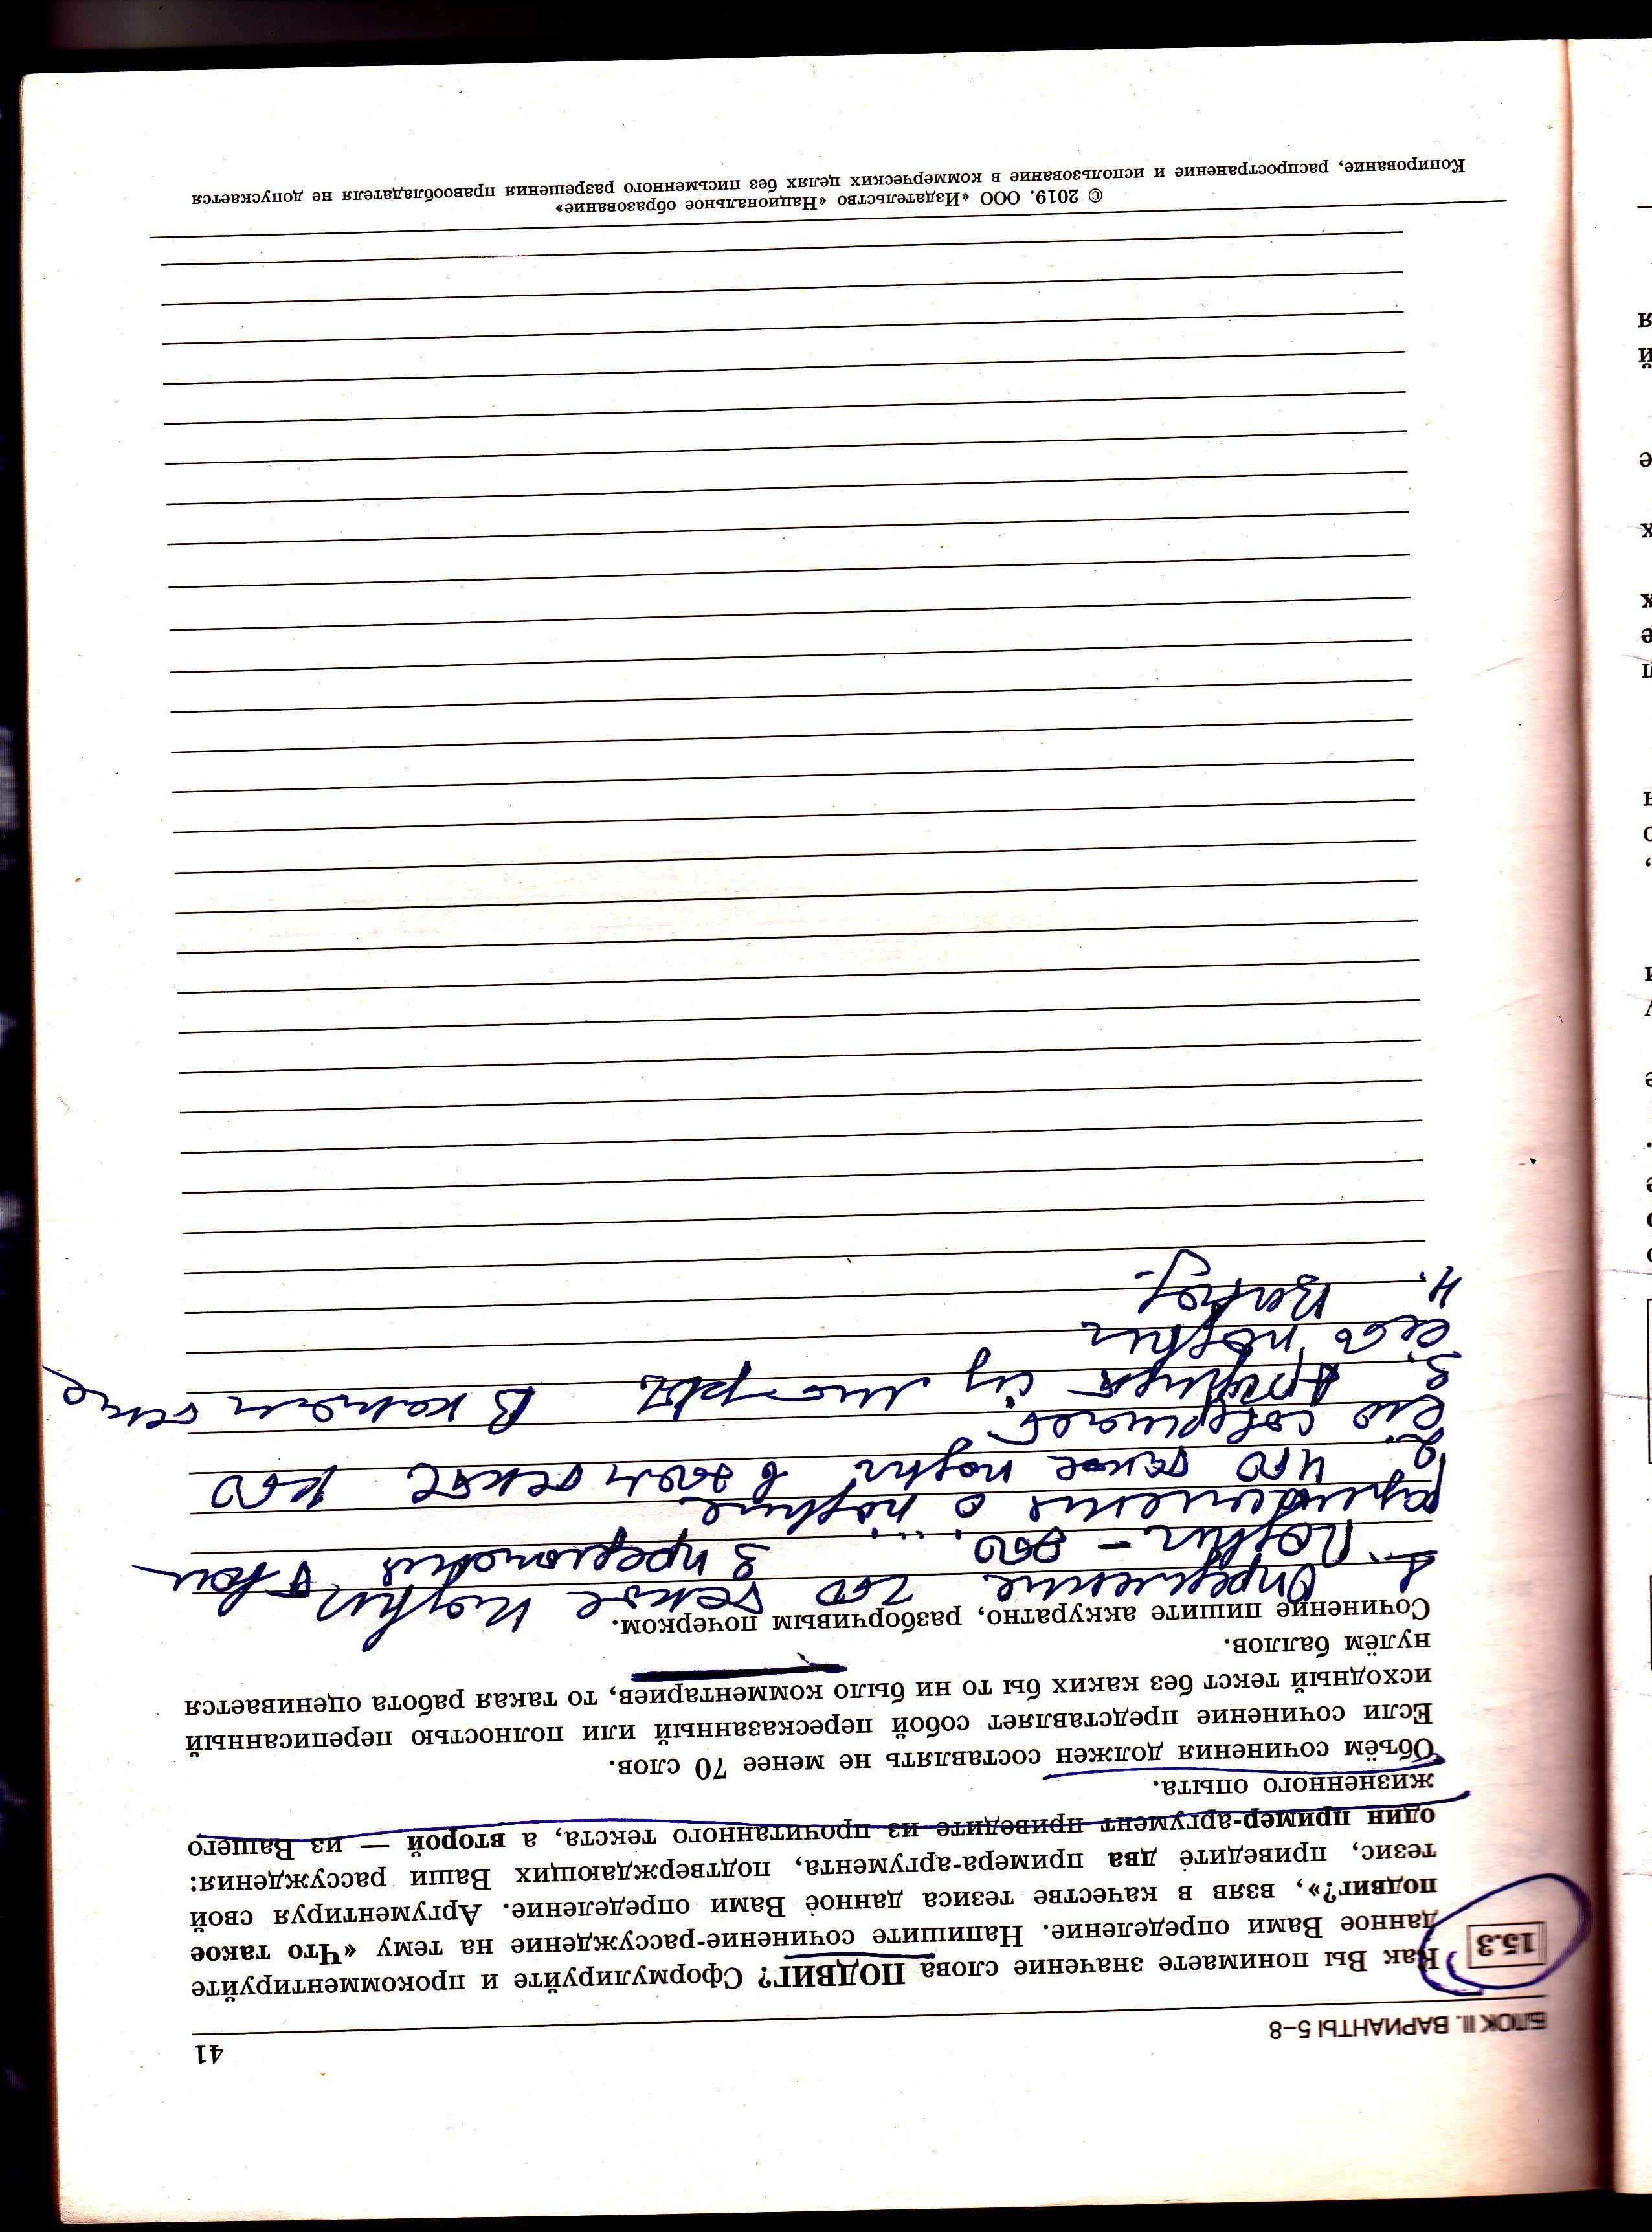 БЛОК II. ВАРИАНТЫ 5–8
41
15.3
Как Вы понимаете значение слова ПОДВИГ? Сформулируйте и прокомментируйте
данное Вами определение. Напишите сочинение-рассуждение на тему «Что такое
подвиг?», взяв в качестве тезиса данное Вами определение. Аргументируя свой
тезис, приведите два примера-аргумента, подтверждающих Ваши рассуждения:
один пример-аргумент приведите из прочитанного текста, а второй — из Вашего
жизненного опыта.
Объём сочинения должен составлять не менее 70 слов.
Если сочинение представляет собой пересказанный или полностью переписанный
исходный текст без каких бы то ни было комментариев, то такая работа оценивается
нулём баллов.
Сочинение пишите аккуратно, разборчивым почерком.
1. Определение что такое подвиг
Подвиг – это ... 3 предложения
размышления о подвиге
2. Что такое подвиг в этом тексте кто
его совершает
3. Аргумент из В каком
свой подвиг
4. Вывод
© 2019. ООО «Издательство «Национальное образование»
Копирование, распространение и использование в коммерческих целях без письменного разрешения правообладателя не допускается